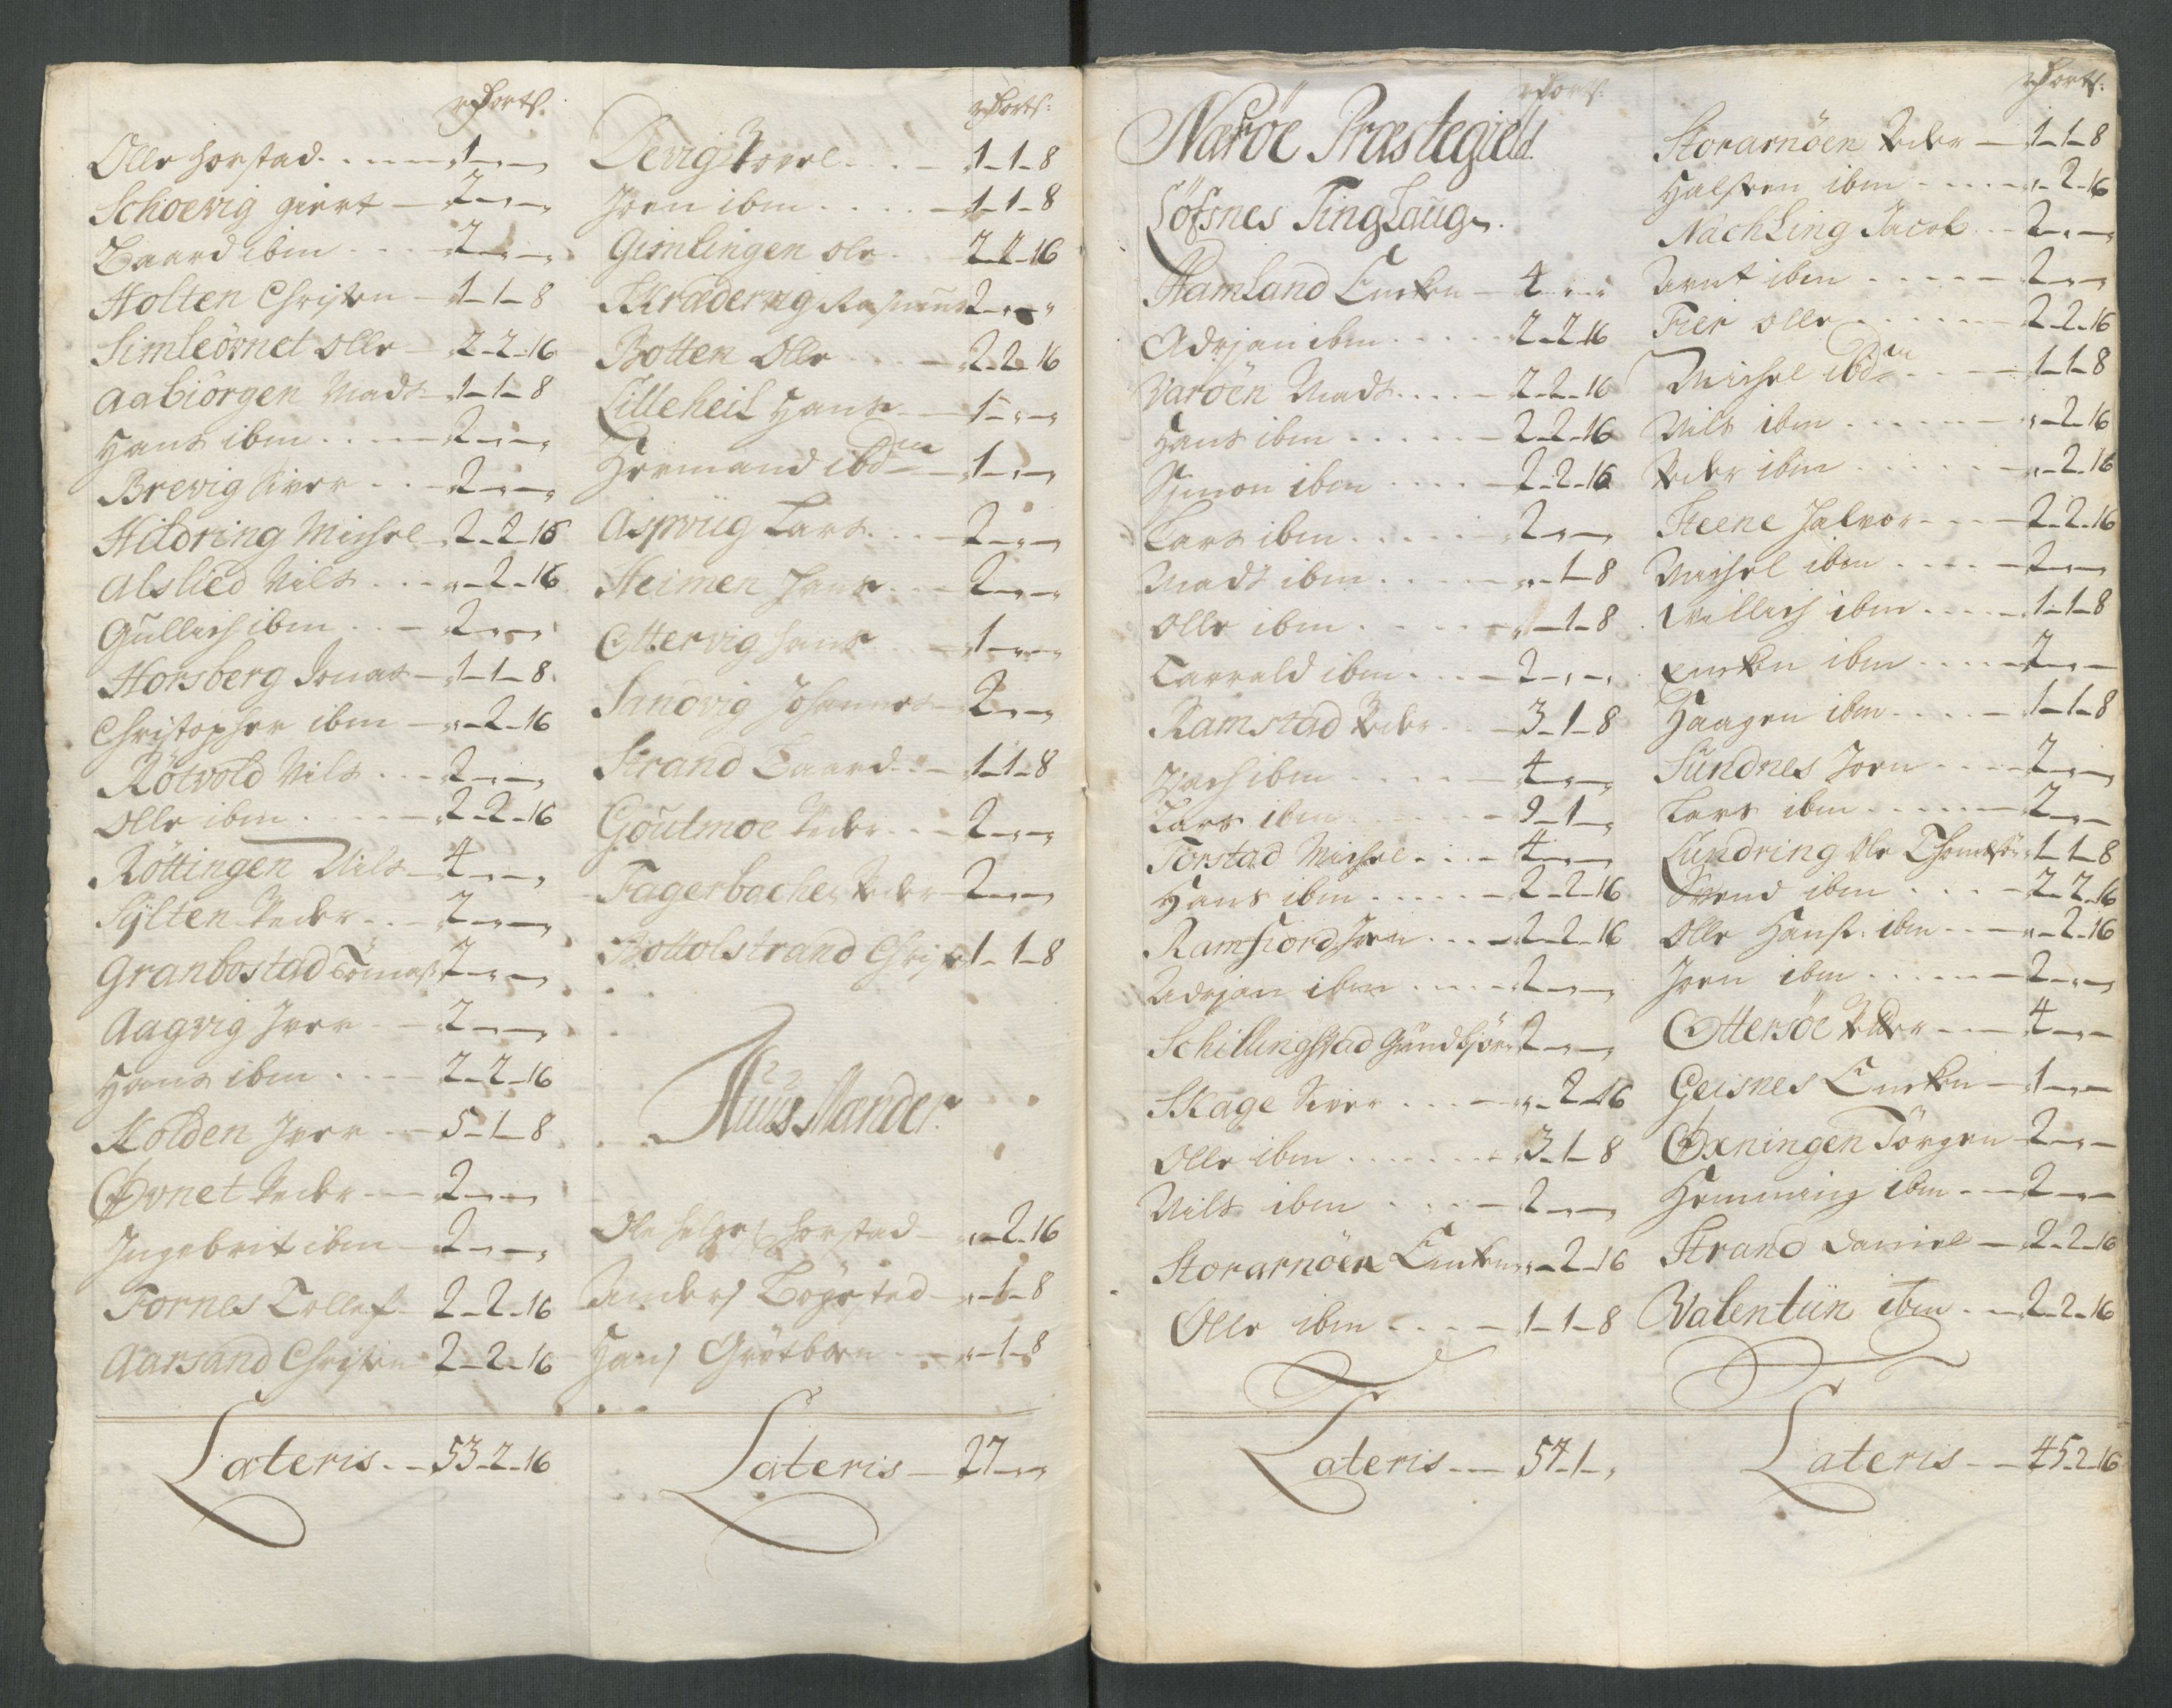 Olle Horstad . . . . 1 — „ — „
Schoevig giert — 2 — „ — „
Baard ibm . . . 2 — „ — „
Holten Christen — 1 — 1 — 8
Simleörnet Olle — 2 — 2 — 16
Aabiörgen Mads — 1 — 1 — 8
Hans ibm . . . — 2 — „ — „
Brevig Siver . . — 2 — „ — „
Hildring Michel — 2 — 2 — 16
Alslied Nils . . . — „ — 2 — 16
Gullich ibm . . — 2 — „ — „
Horsberg Jonas — 1 — 1 — 8
Christopher ibm — „ — 2 — 16
Rötvold Nils . . . 2 — „ — „
Olle ibm . . . . — 2 — 2 — 16
Röttingen Nils — 4 — „ — „
Sylten Peder . . — 2 — „ — „
Granbostad Tömas 2 — „ — „
Aagvig Iver . — 2 — „ — „
Hans ibm . . . — 2 — 2 — 16
Kolden Iver — 5 — 1 — 8
Ovnet Peder — 2 — „ — „
Ingebrit ibm — 2 — „ — „
Fornes Tollef — 2 — 2 — 16
Aarsand Christen 2 — 2 — 16
Lateris . — 53 — 2 — 16
Devig Povel . . . 1 — 1 — 8
Joen ibm . . . . — 1 — 1 — 8
Gimlingen Ole . . 2 — 2 — 16
Skradervig Rasmus 2 — „ — „
Botten Olle . . . — 2 — 2 — 16
Lilleheil Hans — 1 — „ — „
Hermand ibdm — 1 — „ — „
Aspviig Lars . . . — 2 — „ — „
Heimen Jens . . — 2 — „ — „
Ottervig Hans . — 1 — „ — „
Sandvig Johannes — 2 — „ — „
Strand Baard . . — 1 — 1 — 8
Goutmoe Peder . . — 2 — „ — „
Fagerbachen Peder — 2 — „ — „
Bottolstrand 1 — 1 — 8
Huus Mænder
Ole Horstad — „ — 2 — 16
Anders Bögestad — „ — 1 — 8
Hans — „ — 1 — 8
Lateris — 27 — „ — „
Næröe Præstegield
Löfsnes Tinglaug
Hamland Enken — 4 — „ — „
Adrian ibm . . . . . 2 — 2 — 16
Varöen Mads . . . — 2 — 2 — 16
Hans ibm . . . . — 2 — 2 — 16
Symon ibm . . . . — 2 — 2 — 16
Lars ibm . . . . . 2 — „ — „
Mads ibm . . . . — „ — 1 — 8
Olle ibm . . . . — „ — 1 — 8
Tarrald ibm . . . — 2 — „ — „
Ramstad Peder . . — 3 — 1 — 8
ibm . . . . — 4 — „ — „
Lars ibm . . . . — 9 — 1 — „
Torstad Michel . . . — 4 — „ — „
Hans ibm . . . . . — 2 — 2 — 16
Ramfiord Joen . . . — 2 — 2 — 16
Adrian ibm . . . . 2 — „ — „
Schillingstad 2 — „ — „
Skage Siver . . . — „ — 2 — 16
Olle ibm . . . . . . 3 — 1 — 8
Nils ibm . . . . . 2 — „ — „
Storarnöen Enken — „ — 2 — 16
Olle ibm . . . . — 1 — 1 — 8
Lateris . — 57 — 1 — „
Storarnöen Peder — 1 — 1 — 8
Halsten ibm . . . — „ — 2 — 16
Nachling Jacob . . 2 — „ — „
Arnt ibm . . . . . — 2 — „ — „
Fier Olle . . . . . — 2 — 2 — 16
Michel ibdm . . . — 1 — 1 — 8
Nils ibm . . . . . — „ — 2 — 16
Peder ibm . . . . . — „ — 2 — 16
Steene Halvor . . — 2 — 2 — 16
Michel ibm . . . . — 2 — „ — „
Willich ibm . . . . — 1 — 1 — 8
Enken ibm . . . . — 2 — „ — „
Haagen ibm . . . . — 1 — 1 — 8
Sundnes Joen . . . — 2 — „ — „
Lars ibm . . . . . — 2 — „ — „
Lundring Ole Thomesön 1 — 1 — 8
Svend ibm . . . — 2 — 2 — 16
Olle Hans: ibm . . — „ — 2 — 16
Joen ibm . . . . . — 2 — „ — „
Ottersöe Petter — 4 — „ — „
Geisnes Enken — 1 — „ — „
Oxningen Törgen — 2 — „ — „
Hemming ibm . — 2 — „ — „
Strand Daniel — 2 — 2 — 16
Valentiin ibm . — 2 — 2 — 16
Lateris . — 45 — 2 — 16